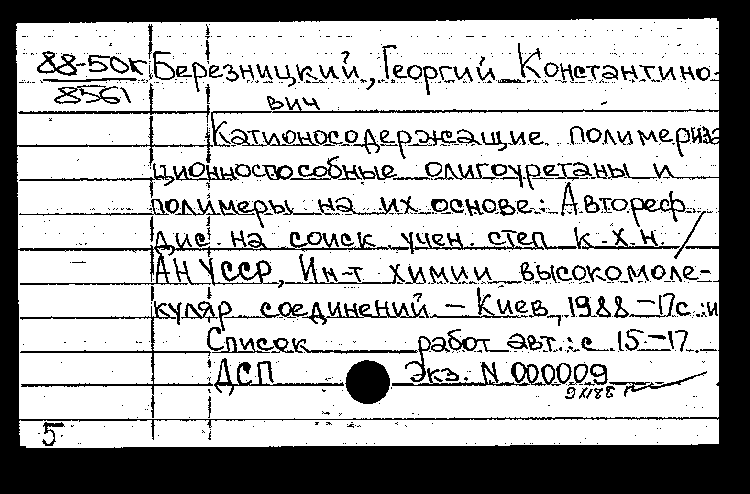 88-50к Березницкий, Георгий Константино-
8561 вич
Катионосодержащие полимериза
ционноспособные олигоуретаны и
полимеры на их основе: Автореф.
дис. на соиск. учен. степ. к.х.н. /
АН УССР, Ин-т химии высокомоле-
куляр. соединений – Киев, 1988 – 17с.:и
Список работ авт.: с 15–17
ДСП Экз. N 000009
5